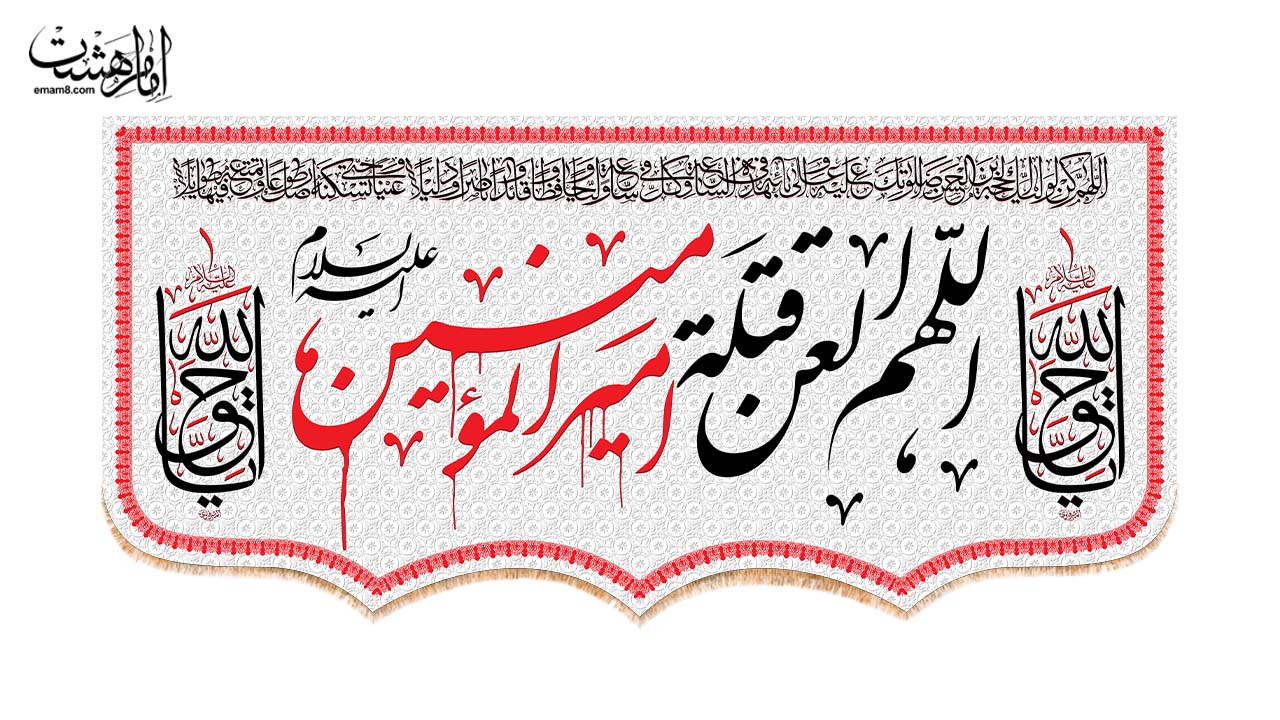 امام هشت
emam8.com
اللهم كن لوليك الحجة بن الحسن صلواتك عليه وعلى آبائه في هذه الساعة وفي كل ساعة وليا وحافظا وقائدا وناصرا ودليلا وعينا حتى تسكنه أرضك طوعا وتمتعه فيها طويلا
عليه السلام
يا حجة الله
اللّهم العن قتلة امير المؤمنين عليه السلام
عليه السلام
يا حجة الله